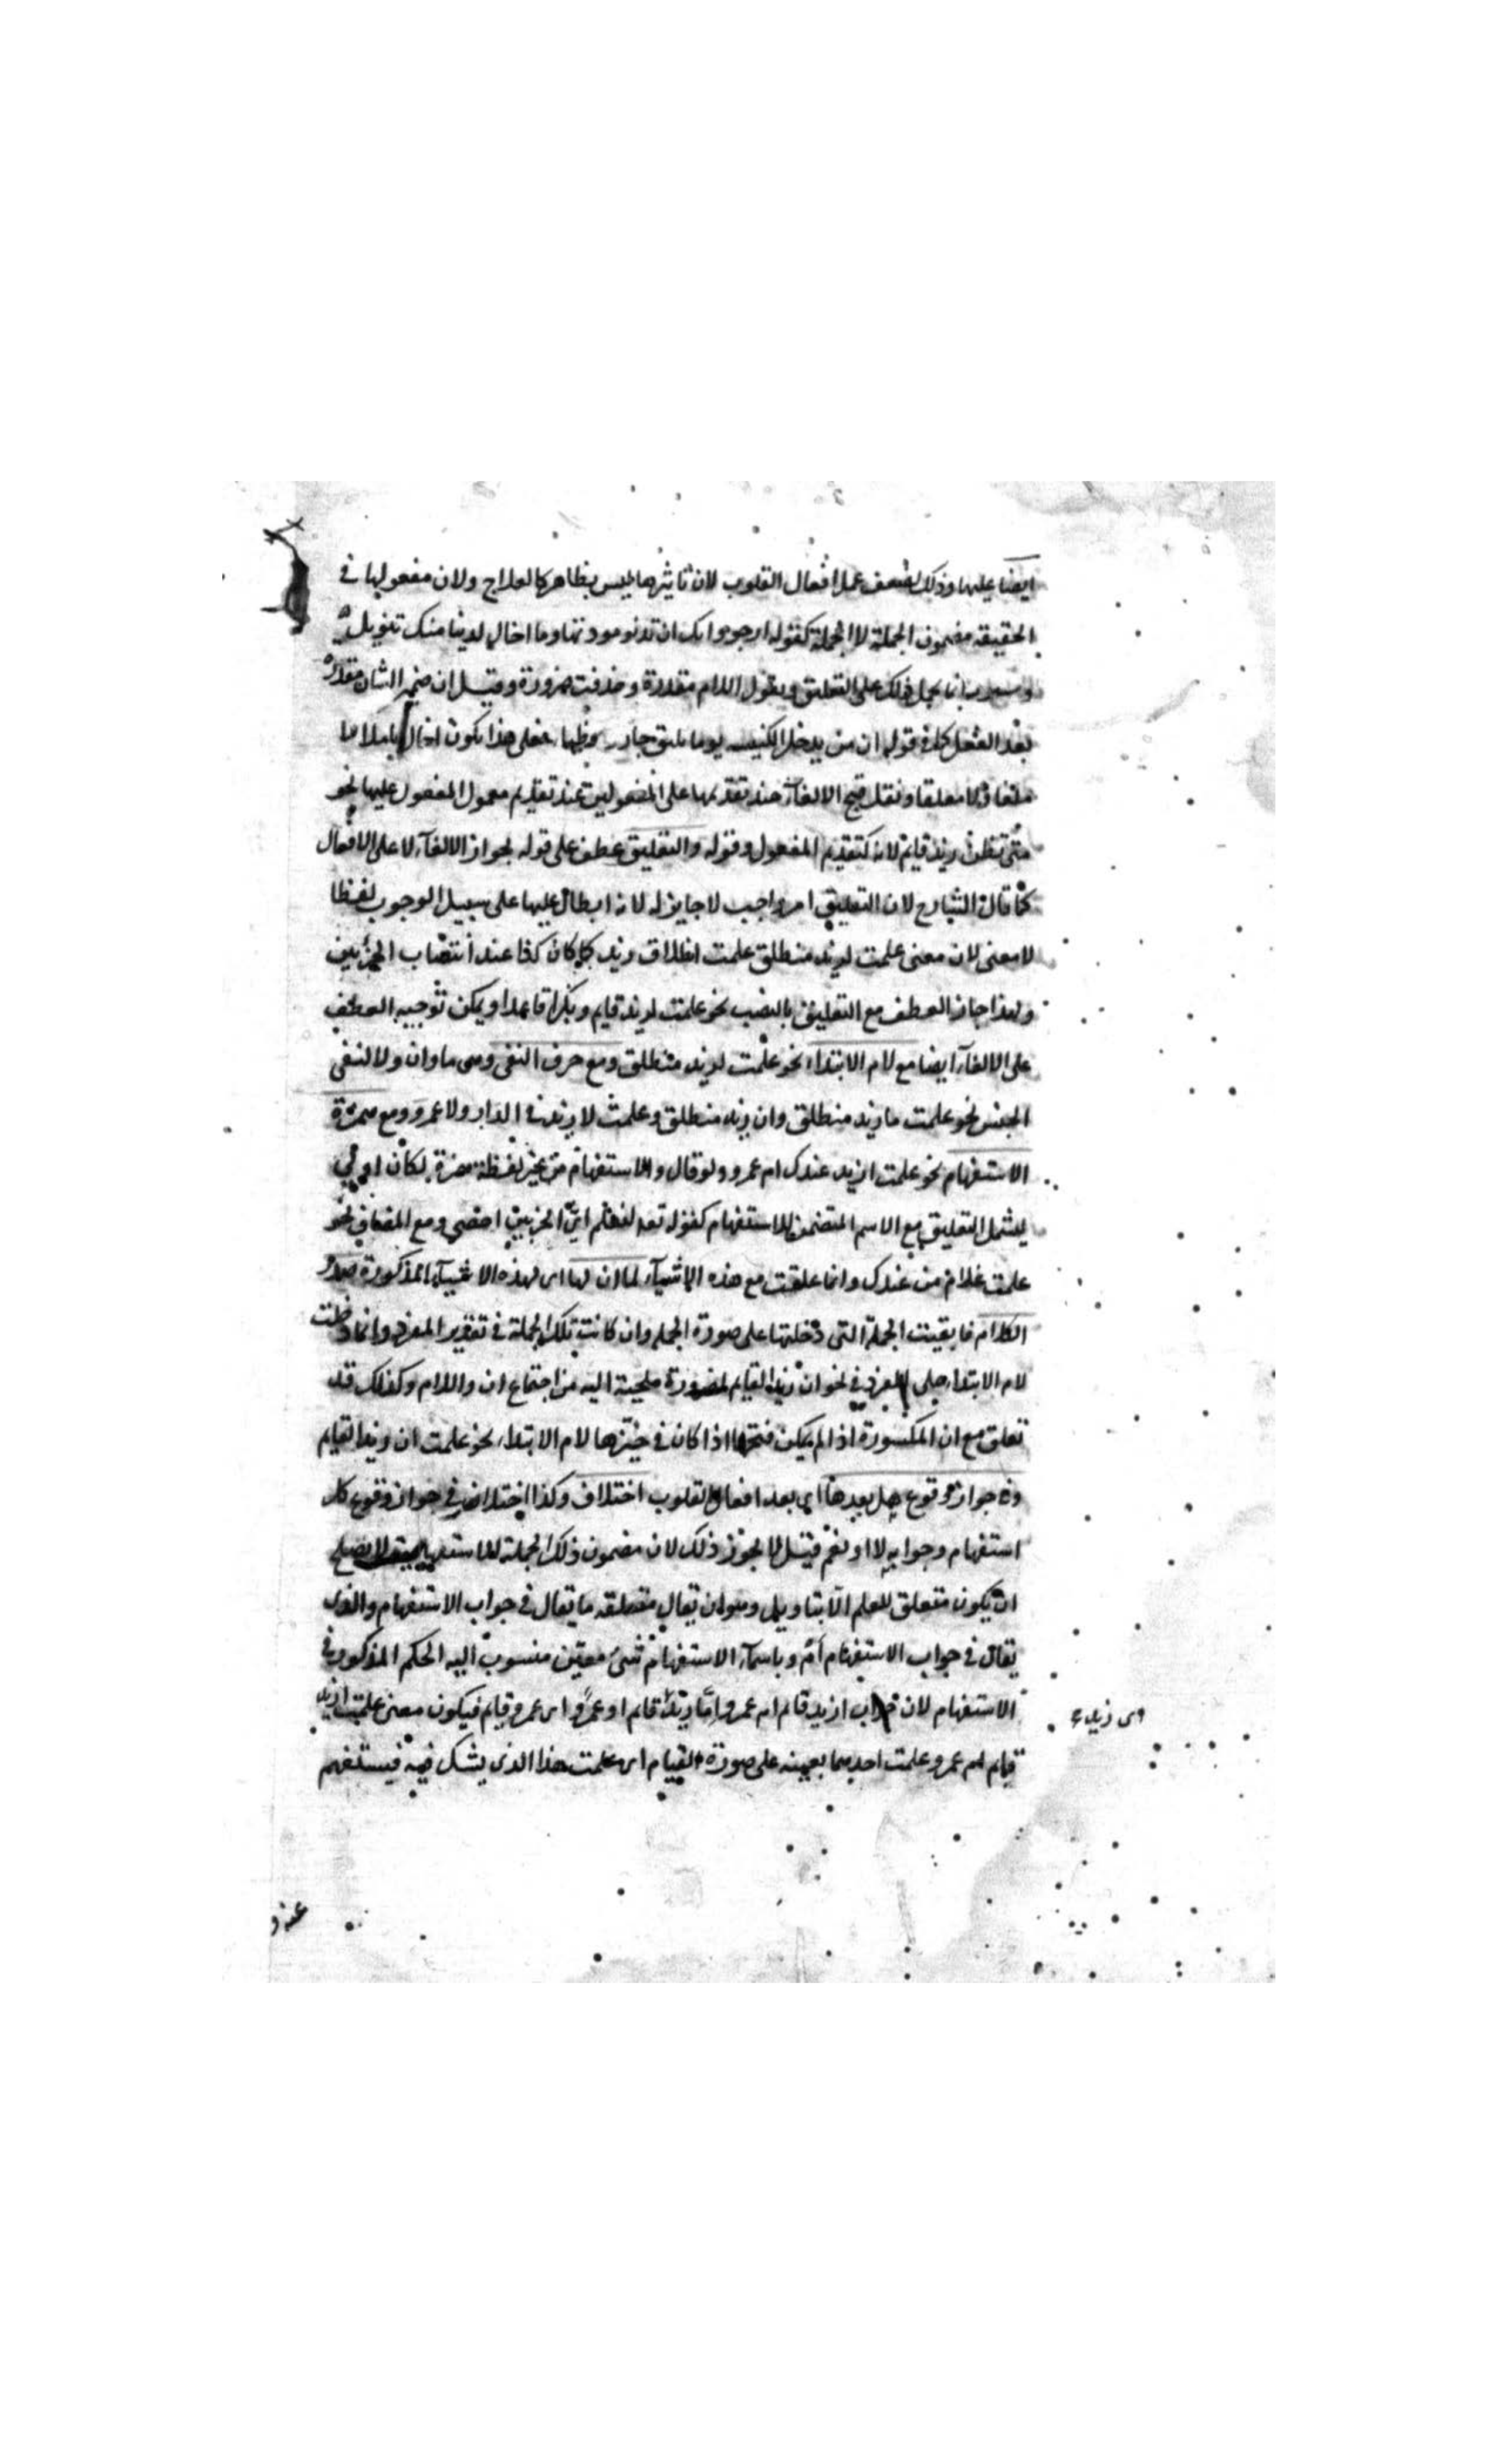 ايضا عليها وذلك لضعف عمل افعال القلوب لان تاثيرها ليس بظاهر كالعلاج ولان مفعولها في
الحقيقة مضمون الجملة لا الجملة كقوله ارجو وآمل ان تدنو مودتها وما اخال لدينا منك تنويل
يحمل ذلك على التعليق ويقول اللام مقدرة وحذفت ضرورة وقيل ان ضمير الشان مقدر
بعد الفعل كما في قوله ان من يدخل الكنيسة يوما يلق جاذرا وظباء فعلى هذا يكون اخال عاملا لا
ملغا ولا معلقا ونقل قبح الالغاء عند تقدمها على المفعولين عند تقديم معمول المفعول عليها نحو
متى تظن زيد قايم لانه كتقديم المفعول وقوله والتعليق عطف على قوله بجواز الالغاء لا على الافعال
كما قال الشارح لان التعليق امر واجب لا جايز له لانه ابطال عليها على سبيل الوجوب لفظا
لا معنى لان معنى علمت لزيد منطلق علمت انطلاق زيد كما كان كذا عند انتصاب الجزئين
ولهذا جاز العطف مع التعليق بالنصب نحو علمت لزيد قايم وبكرا قاعدا ويمكن توجيه العطف
على الالغاء ايضا مع لام الابتداء نحو علمت لزيد منطلق ومع حرف النفي وهي ما وان ولا لنفي
الجنس نحو علمت ما زيد منطلق وان زيد منطلق وعلمت لا زيد في الدار ولا عمرو ومع همزة
الاستفهام نحو علمت ازيد عندك ام عمرو ولو قال والاستفهام من غير لفظة همزة لكان اولى
ليشمل التعليق مع الاسم المتضمن للاستفهام كقوله تعد لنعلم اي الحزبين احصى ومع المضاف نحو
علمت غلام من عندك وانما علقت مع هذه الاشياء لما ان لها اى لهذه الاشياء المذكورة صدر
الكلام فابقيت الجملة التي دخلتها على صورة الجملة وان كانت تلك الجملة في تقدير المفرد وانما دخلت
لام الابتداء على المفرد في نحو ان زيدا لقايم لضرورة ملجئة اليه من اجتماع ان واللام وكذلك قد
تعلق مع ان المكسورة اذ لم يمكن فتحها اذا كان في حيزها لام الابتداء نحو علمت ان زيدا لقايم
وفي جواز وقوع هل بعدها اي بعد افعال القلوب اختلاف وكذا اختلاف في جواز وقوع كل
استفهام وجوابه لا او نعم فقيل لا يجوز ذلك لان مضمون ذلك الجملة الاستفهامية لا يصلح
ان يكون متعلق للعلم الا بتاويل وهو ان يقال متعلقه ما يقال في جواب الاستفهام والذى
يقال في جواب الاستفهام بام وباسماء الاستفهام شيء معين منسوب اليه الحكم المذكور في
الاستفهام لان جواب ازيد قام ام عمرو اما زيد قام او عمرو اى عمرو قايم فيكون معنى علمت ازيد
اى زيد
قايم ام عمرو علمت احدهما بعينه على صورة القيام اى علمت هذا الذي يشك فيه فيستفهم
عنه و